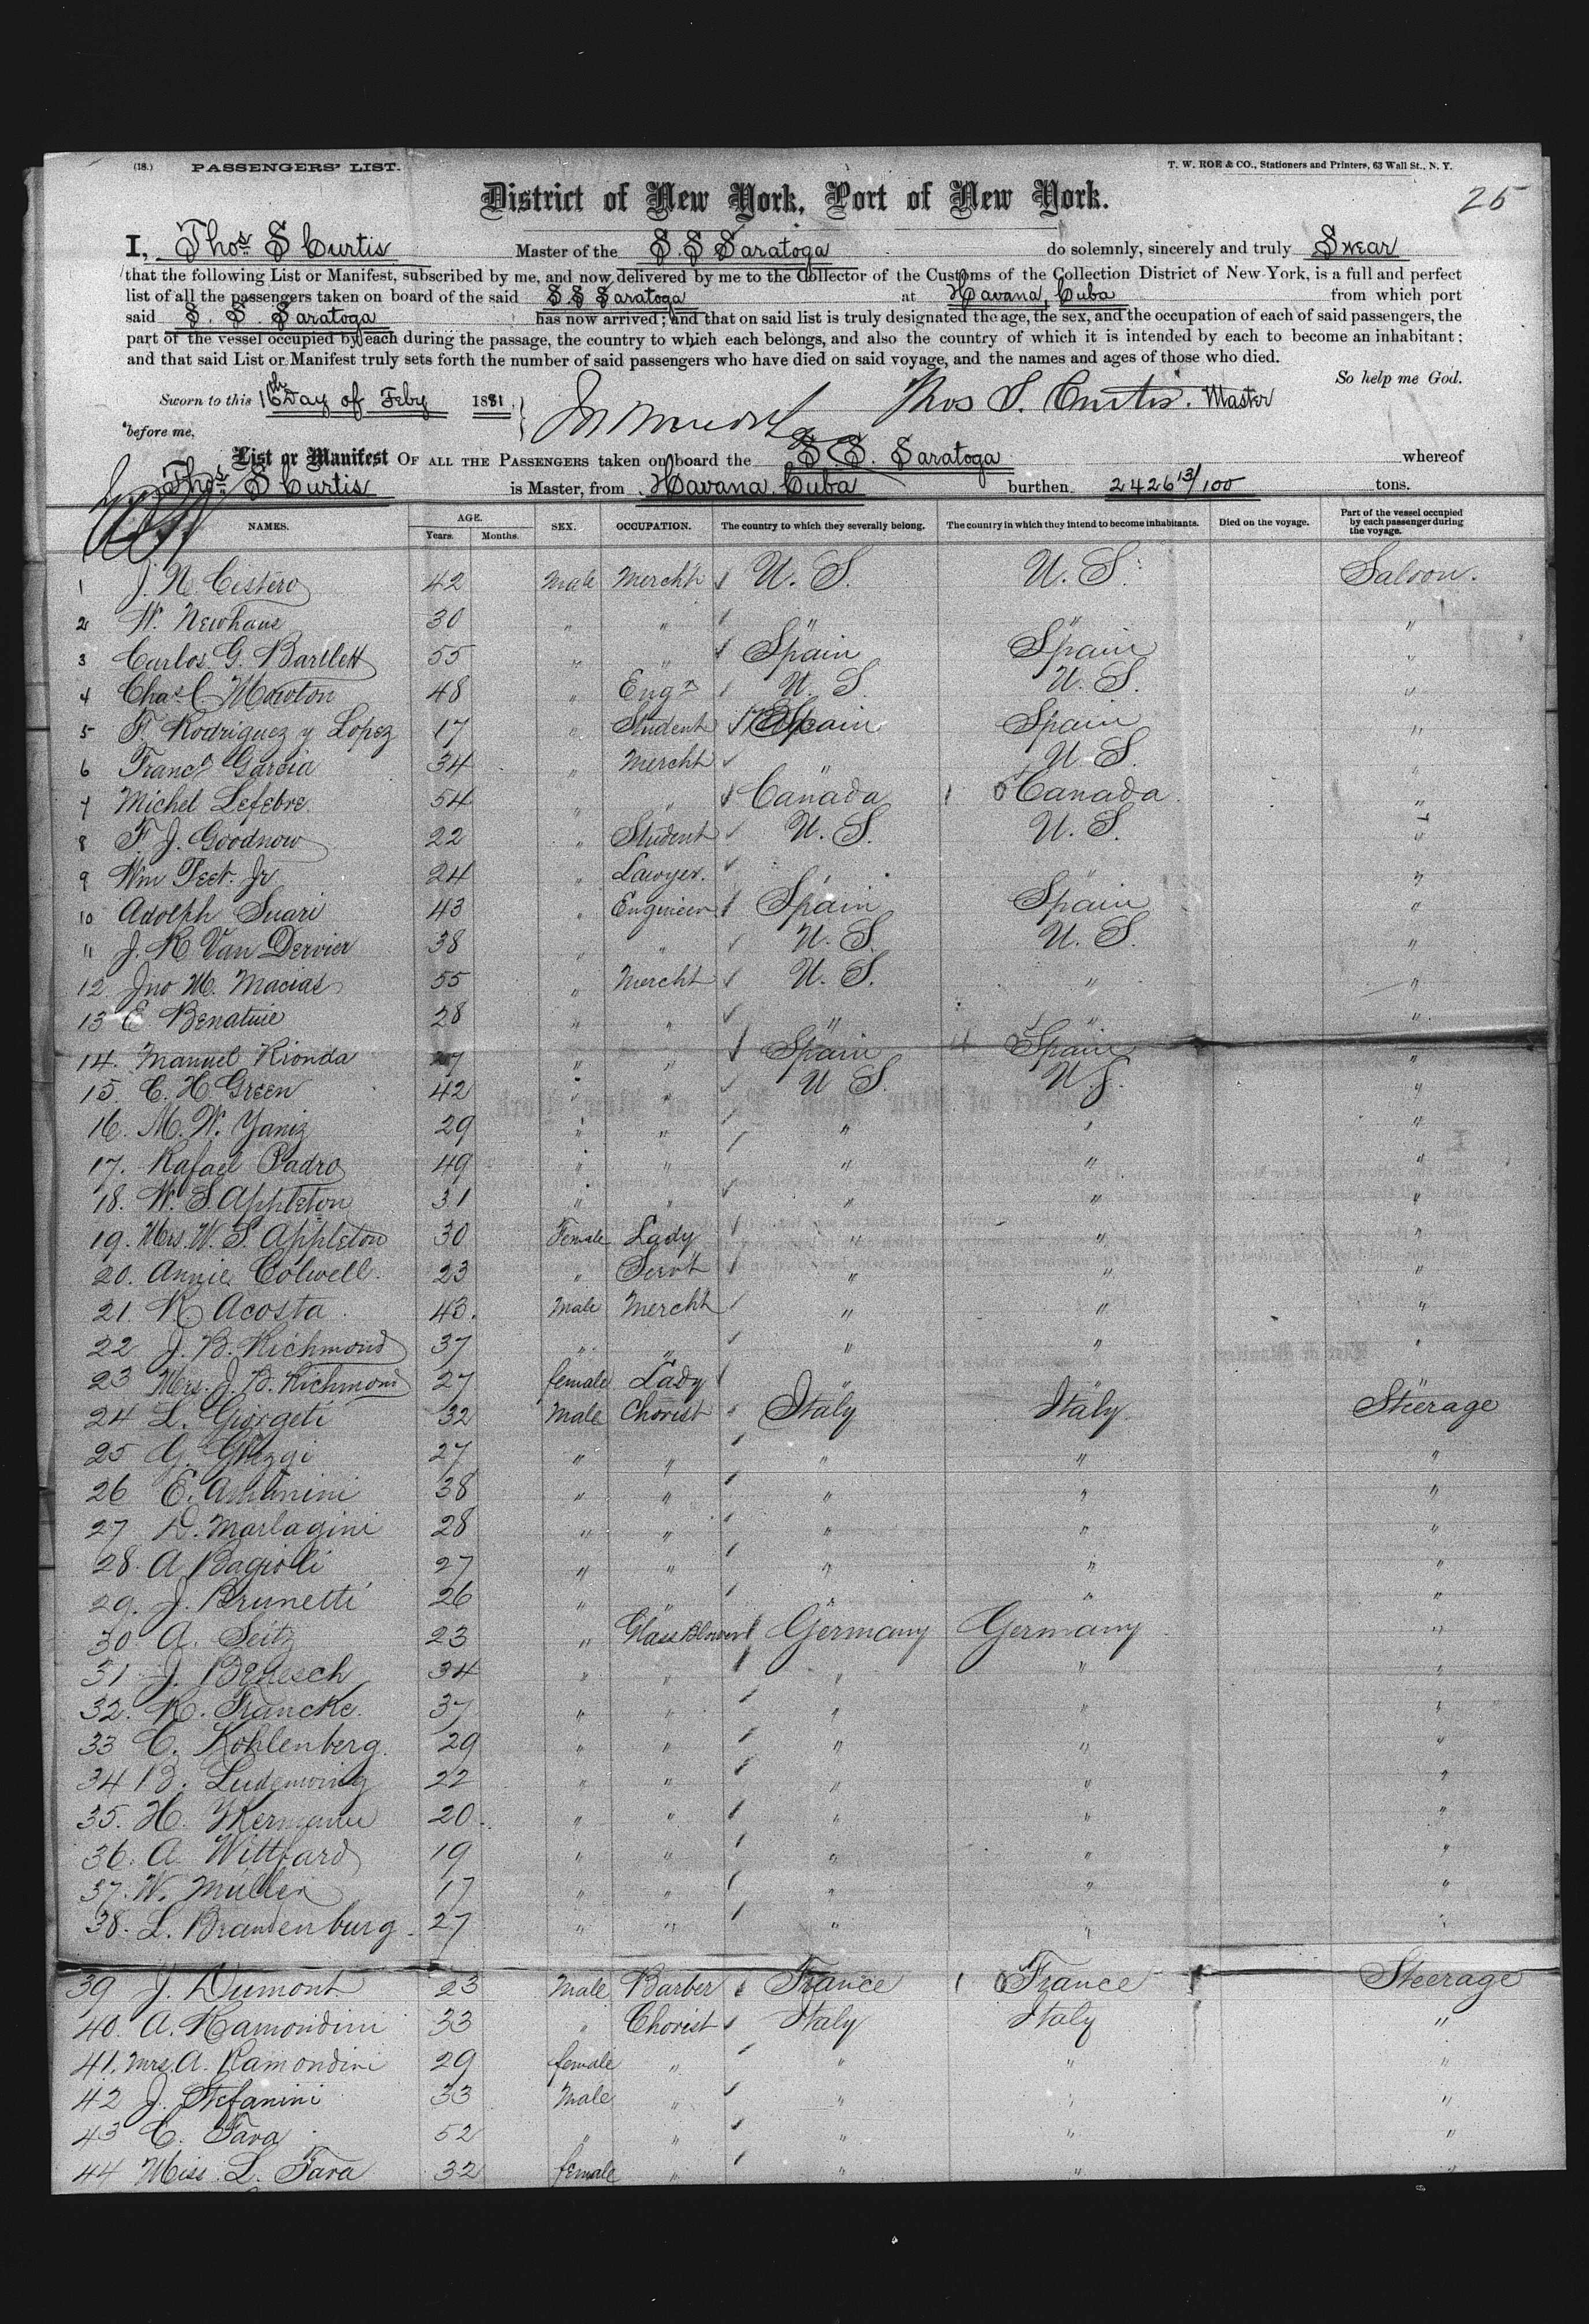 (18.) PASSENGERS' LIST. T. W. ROE & CO., Stationers and Printers, 63 Wall St., N. Y.
25
District of New York, Port of New York.
I, Thos. S Curtis Master of the S. S Saratoga do solemnly, sincerely and truly Swear
that the following List or Manifest, subscribed by me, and now delivered by me to the Collector of the Customs of the Collection District of New York, is a full and perfect
list of all the passengers taken on board of the said S. S Saratoga at Havana, Cuba from which port
said S. S. Saratoga has now arrived; and that on said list is truly designated the age, the sex, and the occupation of each of said passengers, the
part of the vessel occupied by each during the passage, the country to which each belongs, and also the country of which it is intended by each to become an inhabitant;
and that said List or Manifest truly sets forth the number of said passengers who have died on said voyage, and the names and ages of those who died.
So help me God.
Sworn to this 16th Day of Feby 1881 Thos S. Curtis. Master
before me,
List or Manifest OF ALL THE PASSENGERS taken on board the S. S. Saratoga whereof
Thos. S Curtis is Master, from Havana, Cuba burthen 2426 13/100 tons.
NAMES. AGE. Years. Months. SEX. OCCUPATION. The country to which they severally belong. The country in which they intend to become inhabitants. Died on the voyage. Part of the vessel occupied by each passenger during the voyage.
1 J. N. Cistero 42 Male Mercht U. S. U. S. Saloon.
2 W. Newhaus 30 " " " " "
3 Carlos G. Bartlett 55 " " Spain Spain "
4 Chas C. 48 " Engr U. S. U. S. "
5 F. Rodriguez y Lopez 17 " Student Spain Spain "
6 Franco Garcia 34 " Mercht " U. S. "
7 Michel Lefebre 54 " " Canada Canada "
8 F. J. Goodnow 22 " Student U. S. U. S. "
9 Wm Peet Jr 24 " Lawyer. " " "
10 Adolph Suari 43 " Engineer Spain Spain "
11 J. R Van Dervier 38 " " U. S. U. S. "
12 Jno M. Macias 55 " Mercht U. S. " "
13 E 28 " " " " "
14. Manuel Rionda 27 " " Spain Spain "
15. C. H. Green 42 " " U S. U. S. "
16. M. W. Yaniz 29 " " " " "
17. Rafael Padro 49 " " " " "
18. W. S. Appleton 31 " " " " "
19. Mrs. W. S. Appleton 30 Female Lady " " "
20. Annie Colwell. 23 " Servt " " "
21. R. Acosta. 43. Male Mercht " " "
22 J. B. Richmond 37 " " " " "
23 Mrs. J. B. Richmond 27 female Lady " " "
24 L. Giorgeti 32 Male Chorist Italy Italy Steerage
25 G. 27 " " " " "
26 E. 38 " " " " "
27 D. Marlagini 28 " " " " "
28. A Bagioli 27 " " " " "
29. J. Brunetti 26 " " " " "
30 A. Seitz 23 " Glass Blower Germany Germany "
31 J. 34 " " " " "
32. R. Francke. 37 " " " " "
33 C. Kohlenberg. 29 " " " " "
34 B. 22 " " " " "
35. H. 20 " " " " "
36. A. Wittfard 19 " " " " "
37. W. Müller 17 " " " " "
38. L. Brandenburg. 27 " " " " "
39 J. Dumont 23 Male Barber France France Steerage
40. A. Ramondini 33 " Chorist Italy Italy "
41. Mrs. A. Ramondini 29 female " " " "
42 J. Stefanini 33 Male " " " "
43 C. Fava 52 " " " " "
44 Miss L. Fava 32 female " " " "